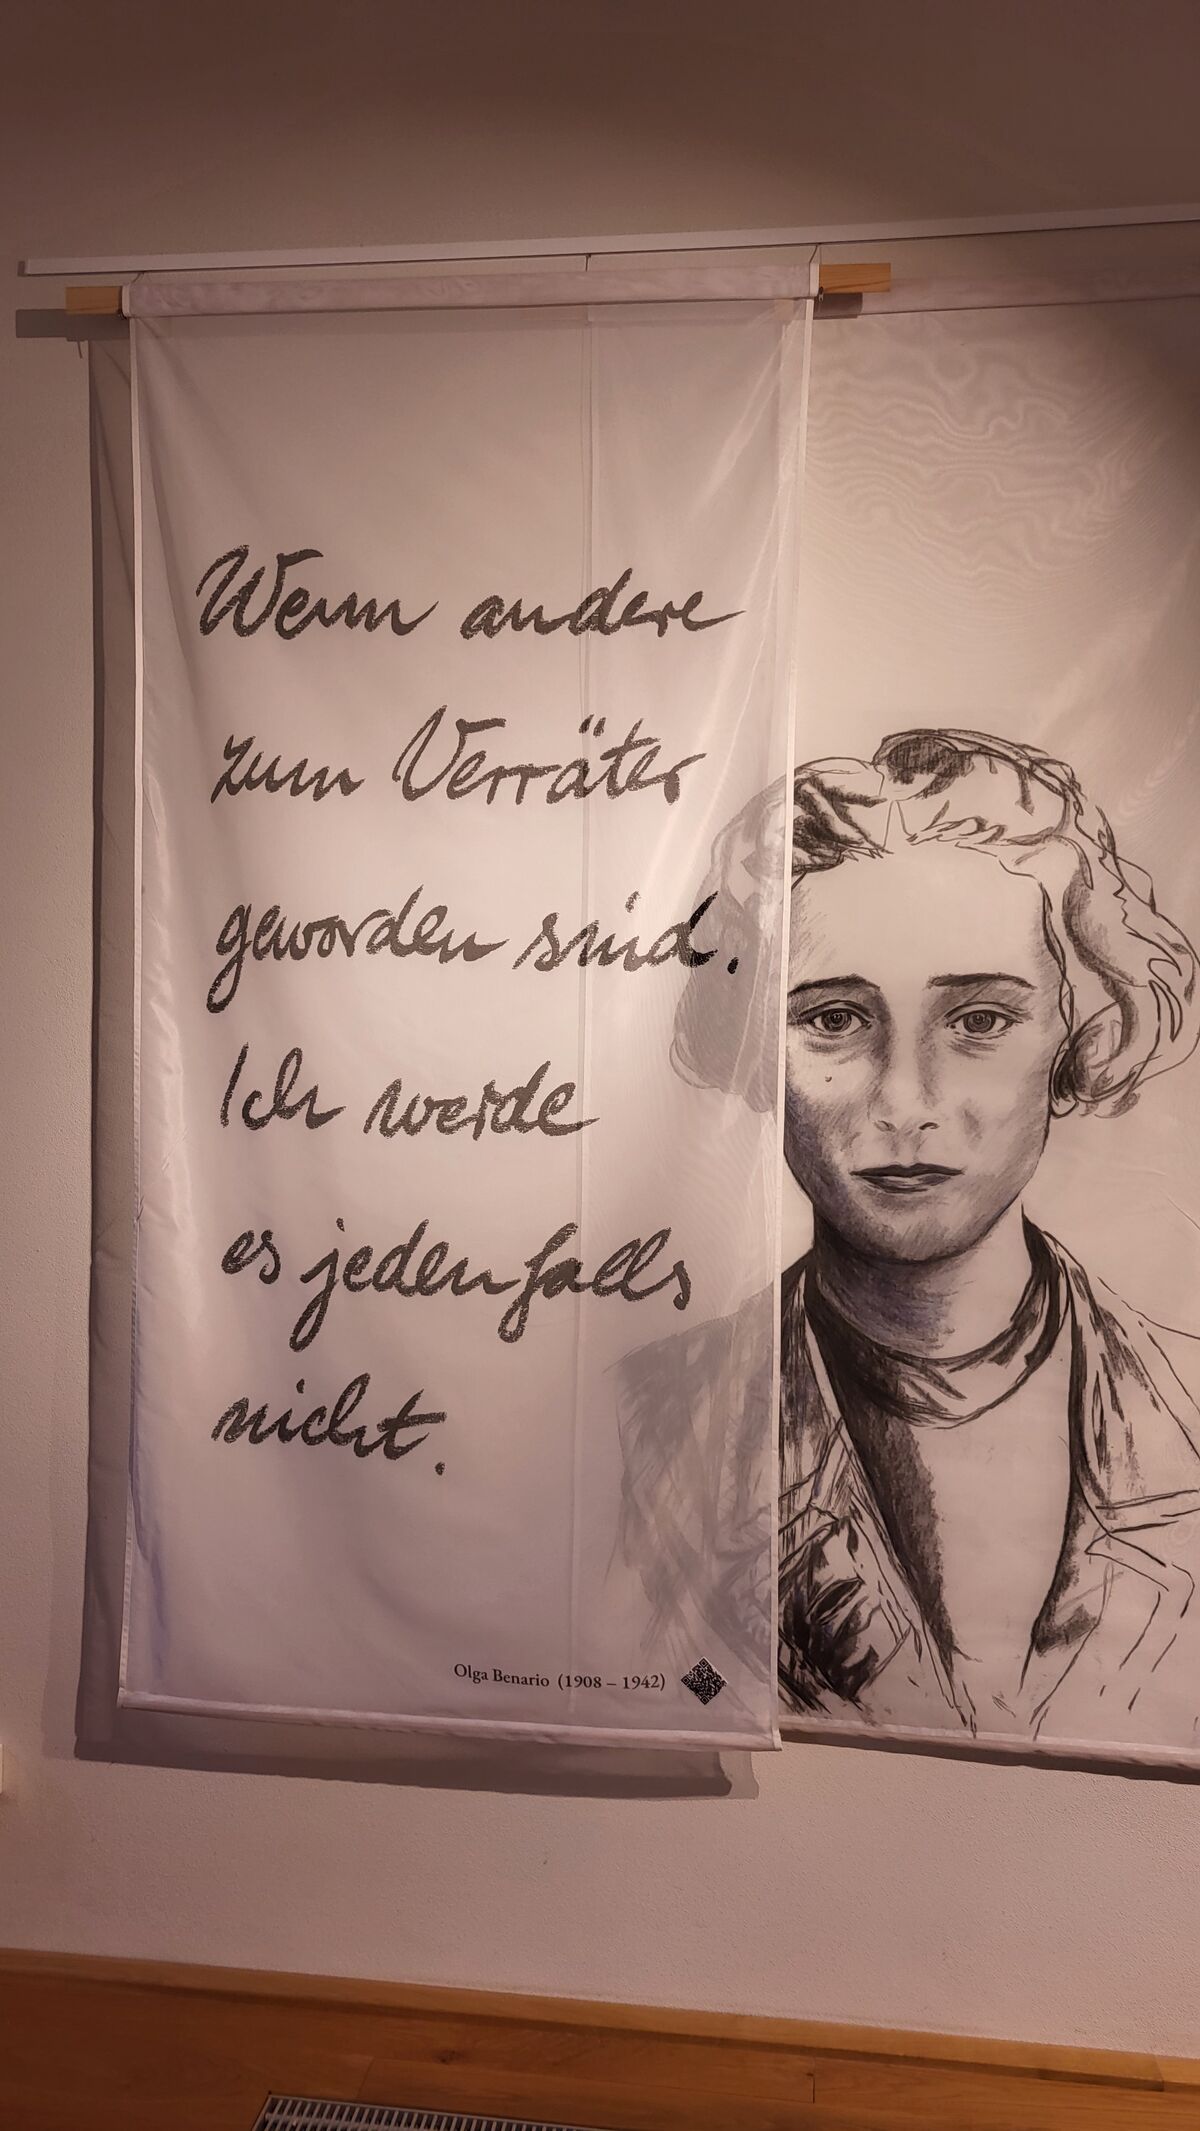 Wenn andere
zum Verräter
geworden sind.
Ich werde
es jedenfalls
nicht.
Olga Benario (1908 – 1942)